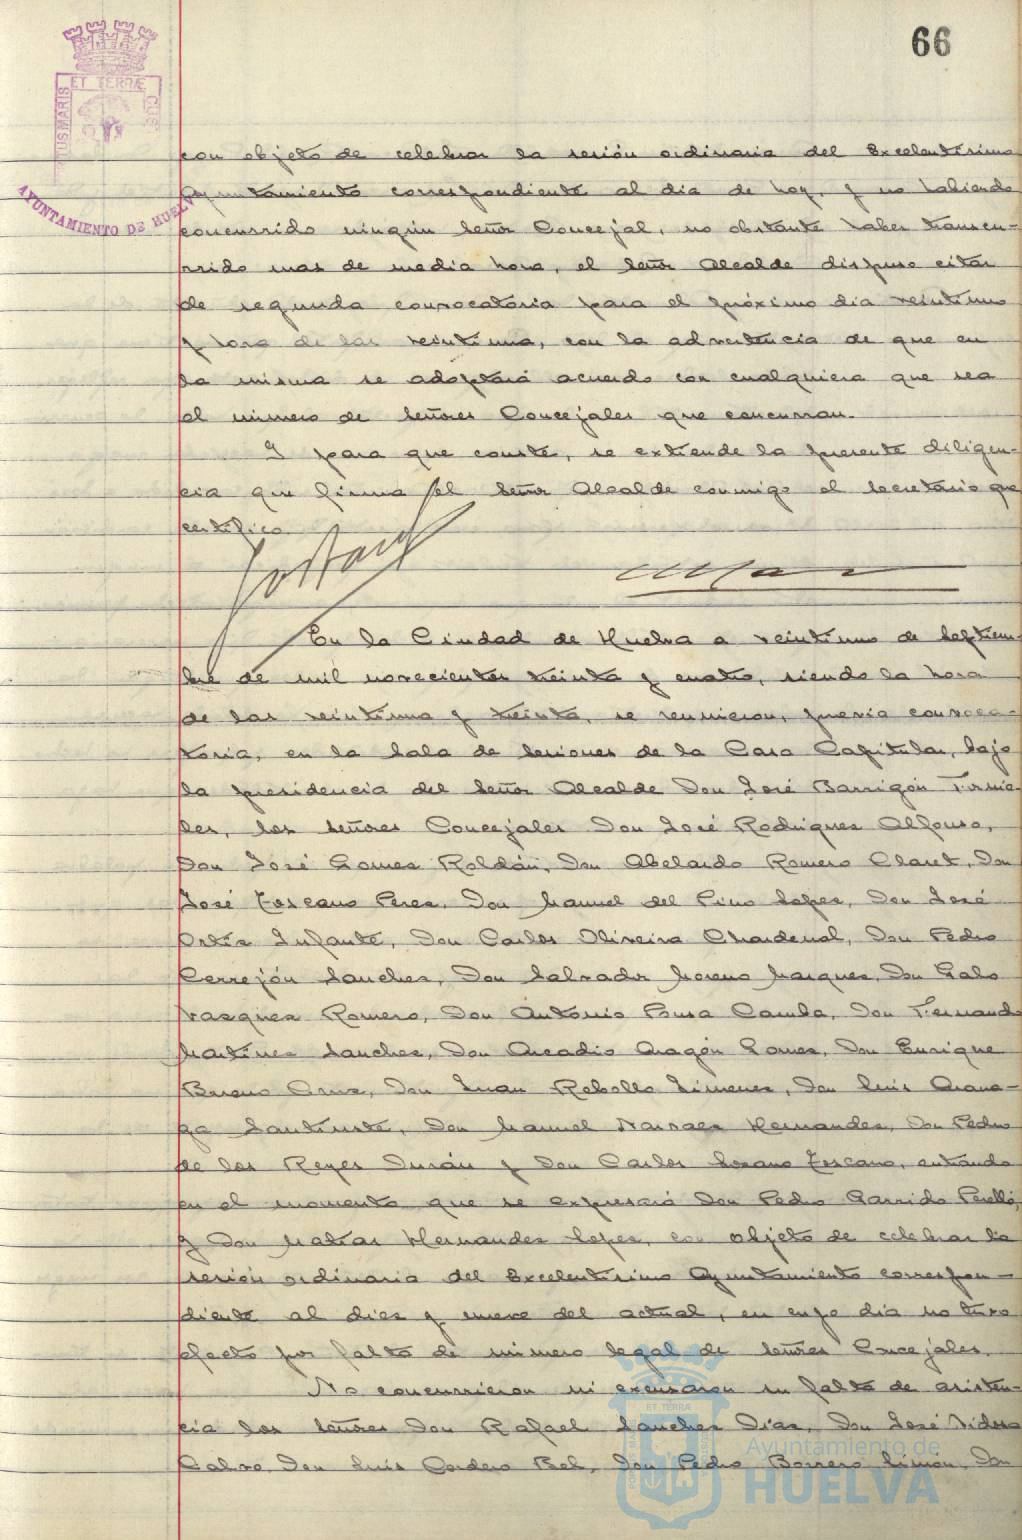 66
ET TERRÆ
PORTUS MARIS
CUS
AYUNTAMIENTO DE HUELVA
con objeto de celebrar la sesión ordinaria del Excelentísimo
Ayuntamiento correspondiente al día de hoy, y no habiendo
concurrido ningún Señor Concejal, no obstante haber transcu-
rrido mas de media hora, el Señor Alcalde dispuso citar
de segunda convocatoria para el próximo día veintiuno
y hora de las veintiuna, con la advertencia de que en
la misma se adoptará acuerdo con cualquiera que sea
el número de Señores Concejales que concurran.
Y para que conste, se extiende la presente diligen-
cia que firma el Señor Alcalde conmigo el Secretario que
certifico.
En la Ciudad de Huelva a veintiuno de Septiem-
bre de mil novecientos treinta y cuatro, siendo la hora
de las veintiuna y treinta, se reunieron, previa convoca-
toria, en la Sala de Sesiones de la Casa Capitular, bajo
la presidencia del Señor Alcalde Don José Barrigón Fornie-
les, los Señores Concejales Don José Rodríguez Alfonso,
Don José Gomez Roldán, Don Abelardo Romero Claret, Don
José Toscano Perez, Don Manuel del Pino Lopez, Don José
Ortiz Infante, Don Carlos Oliveira Chardenal, Don Pedro
Cerrejón Sanchez, Don Salvador Moreno Marquez, Don Galo
Vazquez Romero, Don Antonio Pousa Camba, Don Fernando
Martinez Sanchez, Don Arcadio Aragón Gomez, Don Enrique
Bueno Cruz, Don Juan Rebollo Jimenez, Don Luis
Don Manuel Narvaez Hernandez, Don Pedro
de los Reyes Durán y Don Carlos Lozano Toscano, entrando
en el momento que se expresará Don Pedro Garrido Perelló,
y Don Matías Hernandez Lopez, con objeto de celebrar la
sesión ordinaria del Excelentísimo Ayuntamiento correspon-
diente al diez y nueve del actual, en cuyo día no tuvo
efecto por falta de número legal de Señores Concejales.
No concurrieron ni excusaron su falta de asisten-
cia los Señores Don Rafael Sanchez Díaz, Don José
Calvo, Don Luis Cordero Bel, Don Pedro Borrero Limon, Don
ET TERRÆ
Ayuntamiento de
HUELVA